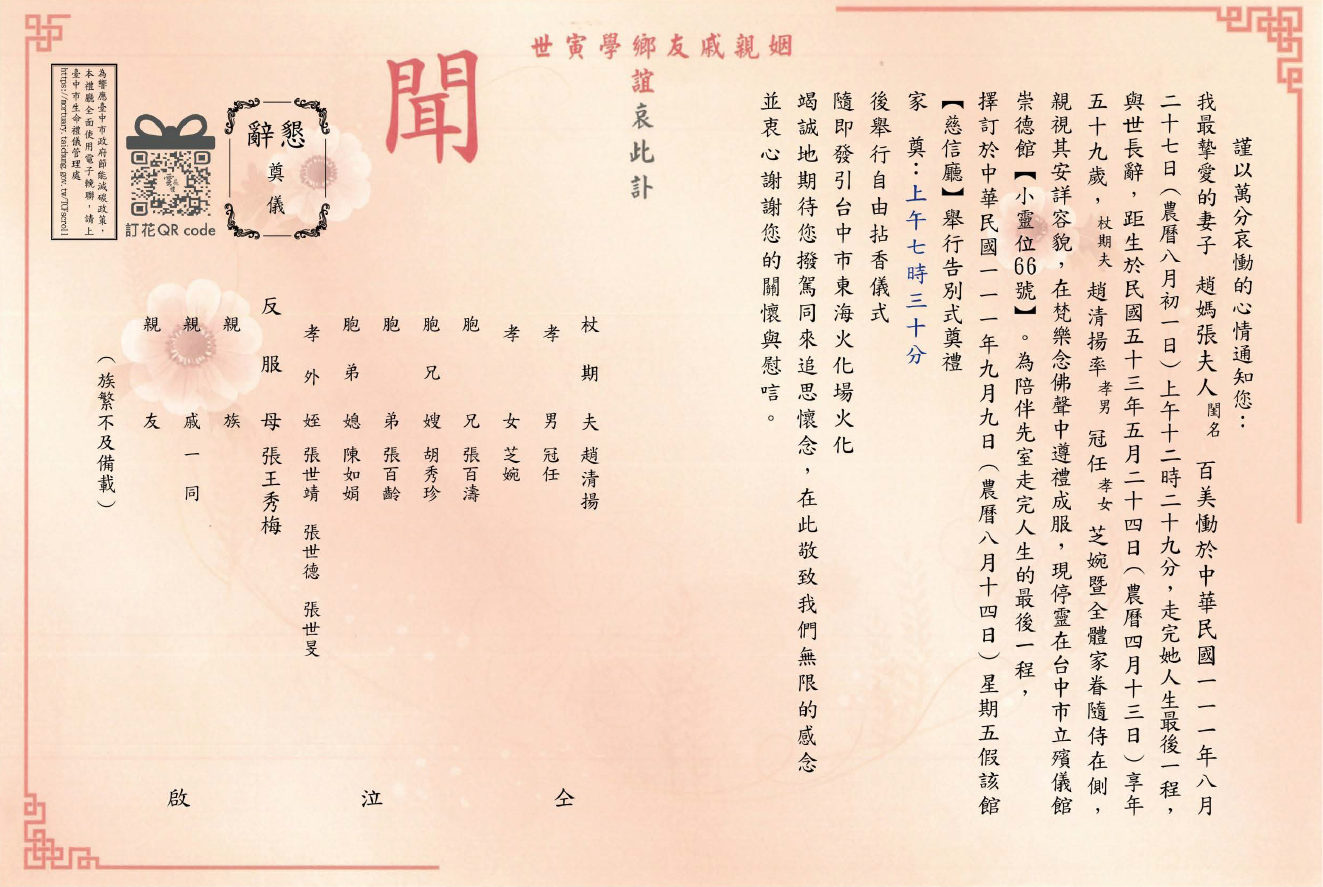 謹以萬分哀慟的心情通知您：
我最摯愛的妻子 趙媽張夫人 閨名 百美慟於中華民國一一一年八月
二十七日（農曆八月初一日）上午十二時二十九分，走完她人生最後一程，
與世長辭，距生於民國五十三年五月二十四日（農曆四月十三日）享年
五十九歲，杖期夫 趙清揚率 孝男 冠任 孝女 芝婉暨全體家眷隨侍在側，
親視其安詳容貌，在梵樂念佛聲中遵禮成服，現停靈在台中市立殯儀館
崇德館【小靈位66號】。為陪伴先室走完人生的最後一程，
擇訂於中華民國一一一年九月九日（農曆八月十四日）星期五假該館
【慈信廳】舉行告別式奠禮
家 奠：上午七時三十分
後舉行自由拈香儀式
隨即發引台中市東海火化場火化
竭誠地期待您撥駕同來追思懷念，在此敬致我們無限的感念
並衷心謝謝您的關懷與慰唁。
姻親戚友鄉學寅世
誼哀此訃
聞
杖期夫 趙清揚
孝男 冠任
孝女 芝婉
胞兄 張百濤
胞兄嫂 胡秀珍
胞弟 張百齡
胞弟媳 陳如娟
孝外姪 張世靖 張世德 張世旻
反服母 張王秀梅
親族
親戚一同
親友
（族繁不及備載）
仝 泣 啟
懇辭
奠儀
訂花QR code
為響應臺中市政府節能減碳政策，
本禮廳全面使用電子輓聯，請上
臺中市生命禮儀管理處
https://mortuary.taichung.gov.tw/TCFscroll